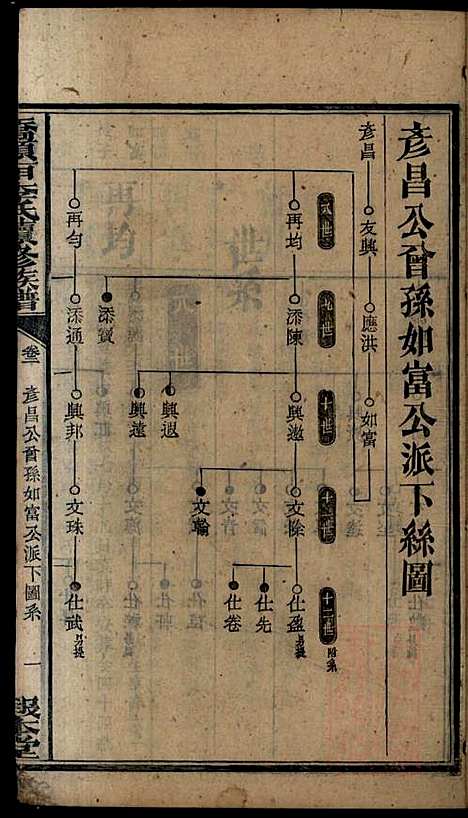 彥昌公曾孫如富公派下絲圖
彥昌 友興 應洪 如富
世 世 十世 十一世 十二世 附系
再均 添陳 興邀 文榆 仕盈 另提
文 仕先
興遐 仕卷
興遠
添寶
再勻 添通 興邦 文珠 仕武 另提
李氏續修族譜
卷三 彥昌公曾孫如富公派下圖系 一
報本堂